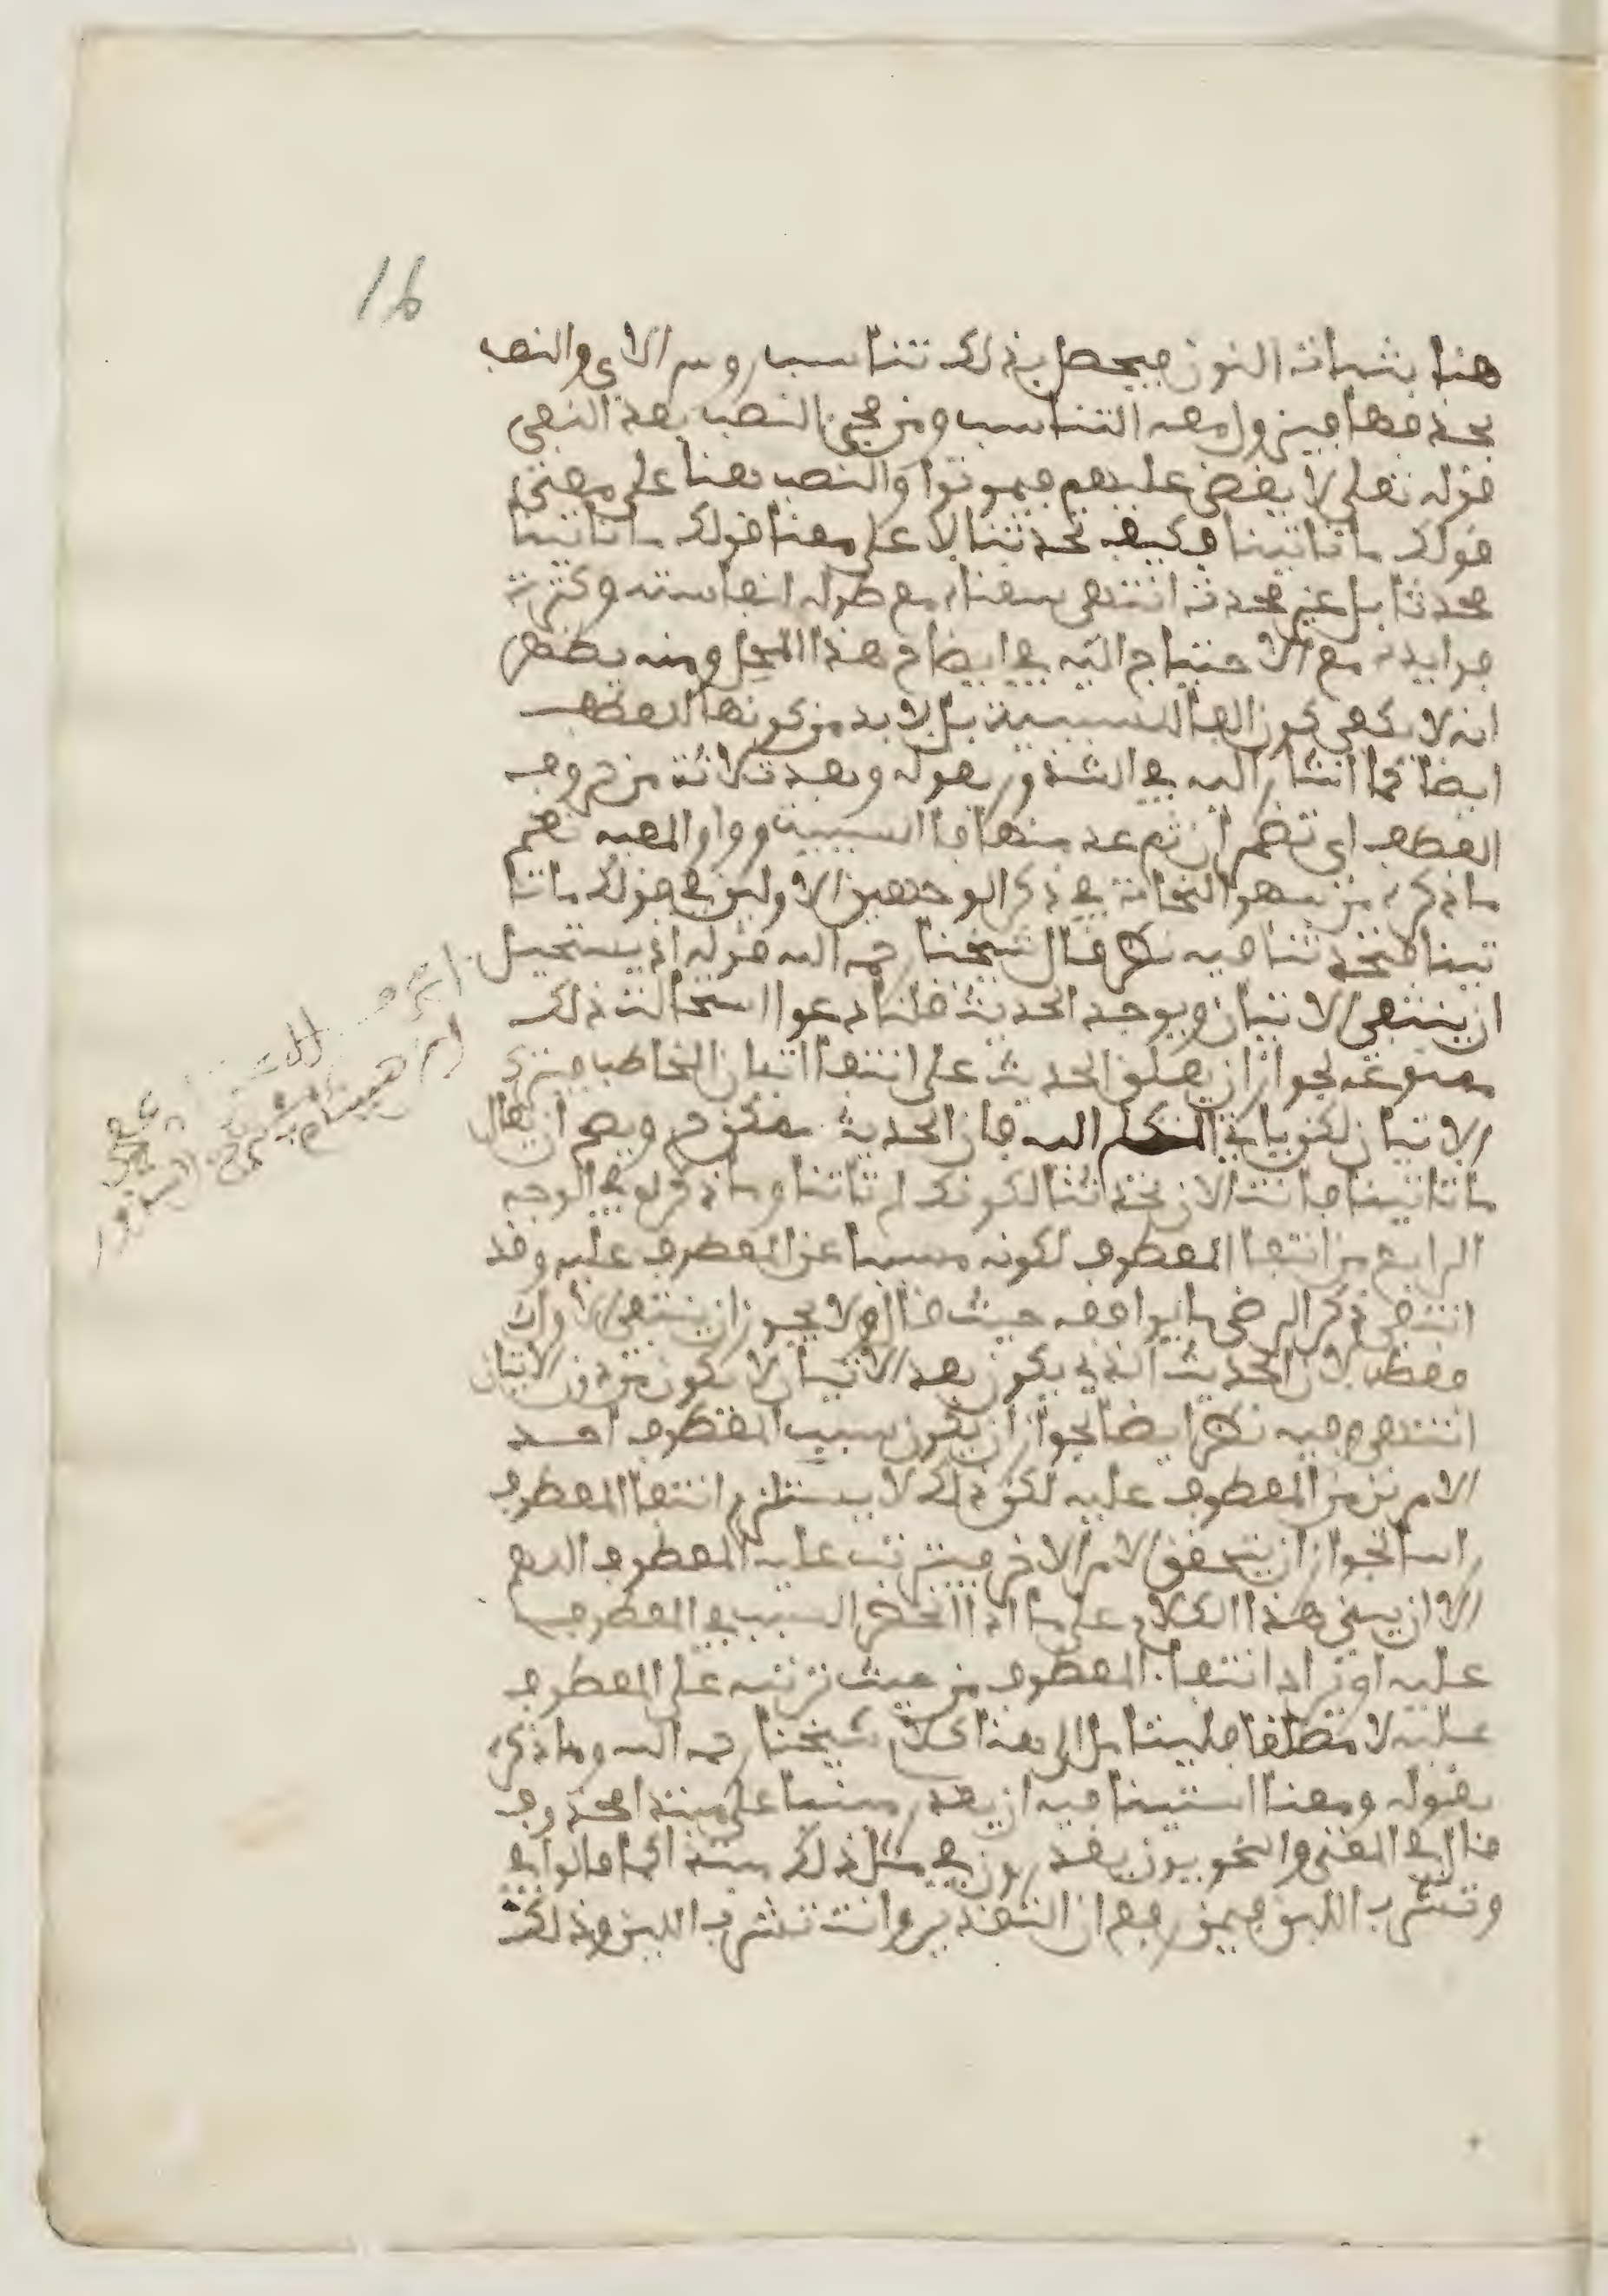 16
هنا بثباتة النون فيحصل بذلك تناسب روس الاي والنصب
بحذفها فيزول معه التناسب ومن مجيئ النصب بعد النفي
قوله تعلى لا يقضى عليهم فيموتوا والنصب هنا على معنى
قولك ما تاتينا فكيف تحدثنا لا على معنا قولك ما تاتينا
محدثا بل غير محدث انتهى سقناه مع طوله لنفاسته وكثرة
فوايده مع الاحتياج اليه في ايضاح هذا المحل ومنه يظهر
انه لا يكفى كون الفا للسببية بل لا بد من كونها للعطف
ايضا كما اشار اليه في الشذور بقوله وبعد ثلاثة من حروف
العطف اى تضمر ان ثم عد منها فا السببية وواو المعية نعم
ما ذكره من سهو النحاة في ذكر الوجهين الاولين في قولك ما تا
تينا فتحدثنا فيه نظر قال شيخنا رحمه الله قوله اذ يستحيل
ان ينتفي الاتيان ويوجد الحديث قلنا دعوا استحالت ذلك
ممنوعة لجواز ان يعلق الحديث على انتفا اتيان المخاطب فيترك
الاتيان لكن ياتي المتكلم اليه فان الحديث ويصح ان يقال
ما تاتينا فانت الان تحدثنا لكونك لم تاتنا وما ذكره في الوجه
الرابع من انتفا المعطوف لكونه مسببا عن المعطوف عليه وقد
انتفى ذكر الرضى ما يوافقه حيث قال ولا يجوز ان ينتفى الاول
فقط لان الحديث الذي يكون بعد الاتيان لا يكون من دون الاتيان
انتهى وفيه نظر ايضا لجواز ان يكون سبب المعطوف احد
الامرين من المعطوف عليه لكن ذلك لا يستلزم انتفا المعطوف
راسا لجواز ان يتحقق الامر الاخر فيترتب عليه المعطوف اللهم
الا ان يبنى هذا الكلام على ما اذا انحصر السبب في المعطوف
عليه او يراد انتفاء المعطوف من حيث ترتبه على المعطوف
عليه لا مطلقا فليتامل الى هنا كلام شيخنا رحمه الله وما ذكره
بقوله ومعنا استينافيه ان يقدر مبنيا على مبتدا محذوف
قال في المغنى والنحويون يقدرون في مثل ذلك مبتدا كما قالوا في
وتشرب اللبن فيمن رفع ان التقدير وانت تشرب اللبن وذلك